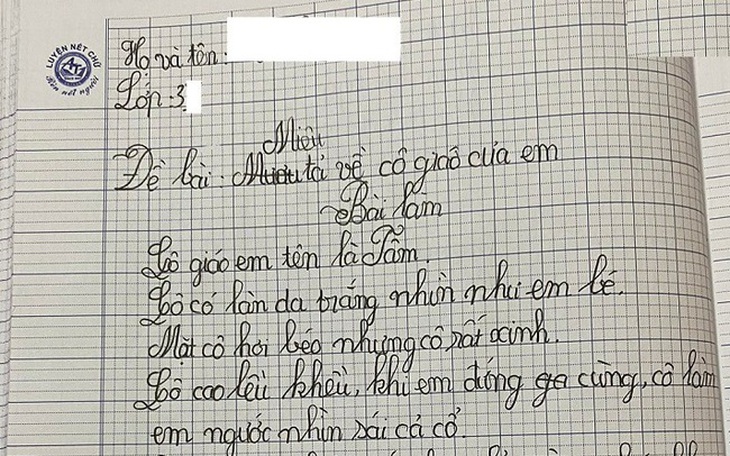 LUYỆN NÉT CHỮ
Rèn nết người
Họ và tên:
Lớp: 3
Miêu
Đề bài: tả về cô giáo của em
Bài làm
Cô giáo em tên là Tâm.
Cô có làn da trắng nhìn như em bé.
Mặt cô hơi béo nhưng cô rất xinh.
Cô cao lêu khêu, khi em đứng gần cùng, cô làm
em ngước nhìn sái cả cổ.